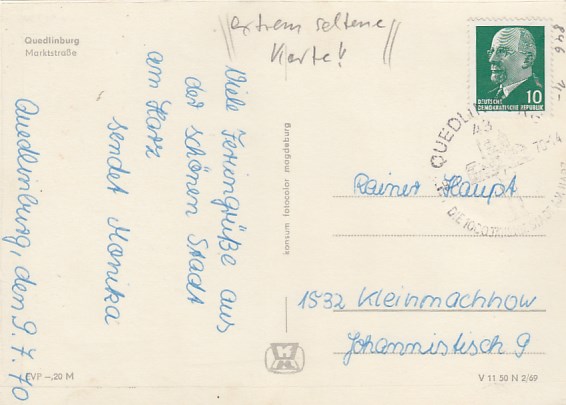 Quedlinburg
Marktstraße
extrem seltene
Karte!!
846
1,-
10
DEUTSCHE
DEMOKRATISCHE REPUBLIK
QUEDLINBURG
43
Quedlinburg, den 9.7.70
Viele Feriengrüße aus
der schönen Stadt
am Harz
sendet Monika
konsum fotocolor magdeburg
Rainer Haupt
1532 Kleinmachnow
Johannistisch 9
EVP –,20 M
V 11 50 N 2/69